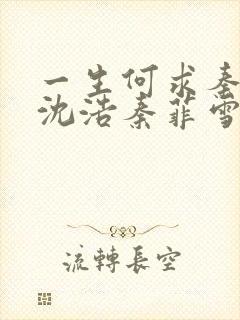 一生何求秦
沈浩秦菲雪
流轉長空